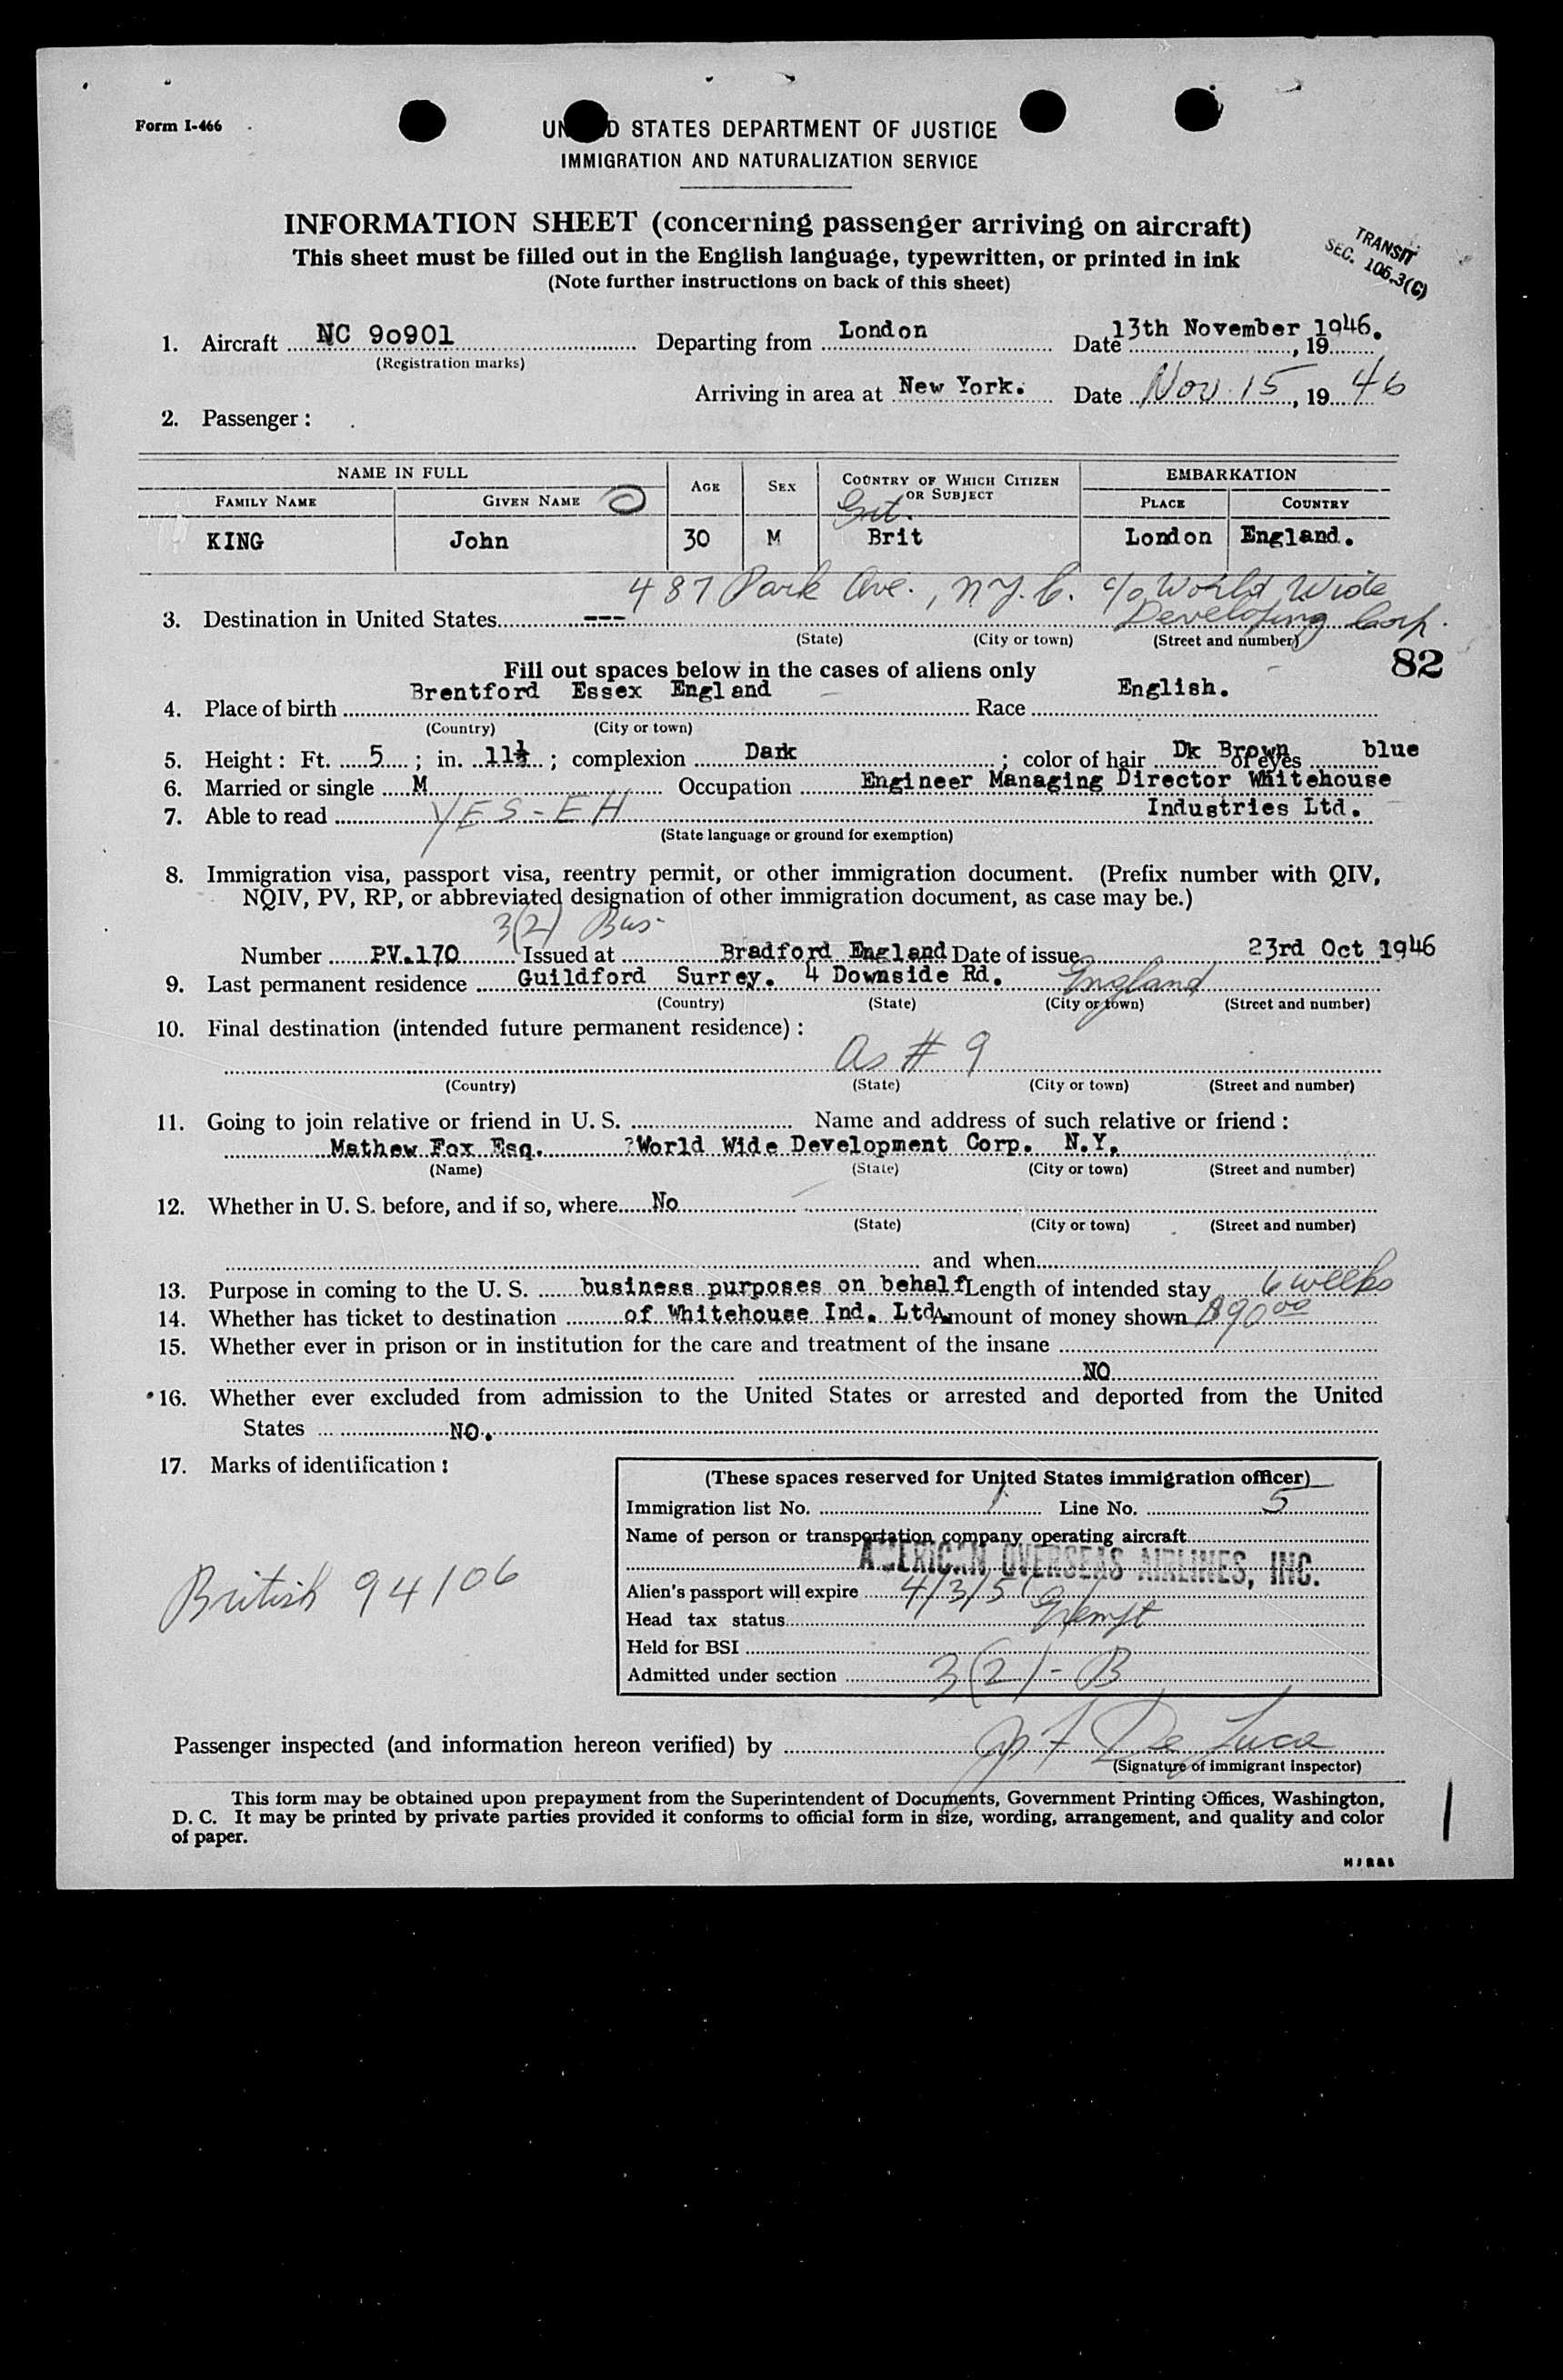 Form I-466
UN D STATES DEPARTMENT OF JUSTICE
IMMIGRATION AND NATURALIZATION SERVICE
INFORMATION SHEET (concerning passenger arriving on aircraft)
This sheet must be filled out in the English language, typewritten, or printed in ink
(Note further instructions on back of this sheet)
TRANSIT
SEC. 105.3(C)
1. Aircraft NC 90901 Departing from London Date 13th November 1946. , 19
(Registration marks)
Arriving in area at New York. Date Nov 15, 1946
2. Passenger:
NAME IN FULL AGE SEX COUNTRY OF WHICH CITIZEN OR SUBJECT EMBARKATION
FAMILY NAME GIVEN NAME PLACE COUNTRY
KING John 30 M Brit London England.
487 Park Ave., N.Y.C. c/o World Wide
Developing Corp.
3. Destination in United States ---
(State) (City or town) (Street and number)
82
Fill out spaces below in the cases of aliens only
4. Place of birth Brentford Essex England Race English.
(Country) (City or town)
5. Height: Ft. 5; in. 11½; complexion Dark; color of hair Dk Brown of eyes blue
6. Married or single M Occupation Engineer Managing Director Whitehouse
Industries Ltd.
7. Able to read YES - EH
(State language or ground for exemption)
8. Immigration visa, passport visa, reentry permit, or other immigration document. (Prefix number with QIV,
NQIV, PV, RP, or abbreviated designation of other immigration document, as case may be.)
3(2) Bus-
Number PV.170 Issued at Bradford England Date of issue 23rd Oct 1946
9. Last permanent residence Guildford Surrey. 4 Downside Rd. England
(Country) (State) (City or town) (Street and number)
10. Final destination (intended future permanent residence):
As # 9
(Country) (State) (City or town) (Street and number)
11. Going to join relative or friend in U. S. Name and address of such relative or friend:
Mathew Fox Esq. ?World Wide Development Corp. N.Y.
(Name) (State) (City or town) (Street and number)
12. Whether in U. S. before, and if so, where No
(State) (City or town) (Street and number)
and when
13. Purpose in coming to the U. S. business purposes on behalf Length of intended stay 6 weeks
14. Whether has ticket to destination of Whitehouse Ind. Ltd. Amount of money shown $90.00
15. Whether ever in prison or in institution for the care and treatment of the insane
NO
*16. Whether ever excluded from admission to the United States or arrested and deported from the United
States NO.
17. Marks of identification:
British 94106
(These spaces reserved for United States immigration officer)
Immigration list No. 1 Line No. 5
Name of person or transportation company operating aircraft
AMERICAN OVERSEAS AIRLINES, INC.
Alien's passport will expire 4/3/51
Head tax status Exempt
Held for BSI
Admitted under section 3(2)-B
Passenger inspected (and information hereon verified) by De Luca
(Signature of immigrant inspector)
This form may be obtained upon prepayment from the Superintendent of Documents, Government Printing Offices, Washington,
D. C. It may be printed by private parties provided it conforms to official form in size, wording, arrangement, and quality and color
of paper.